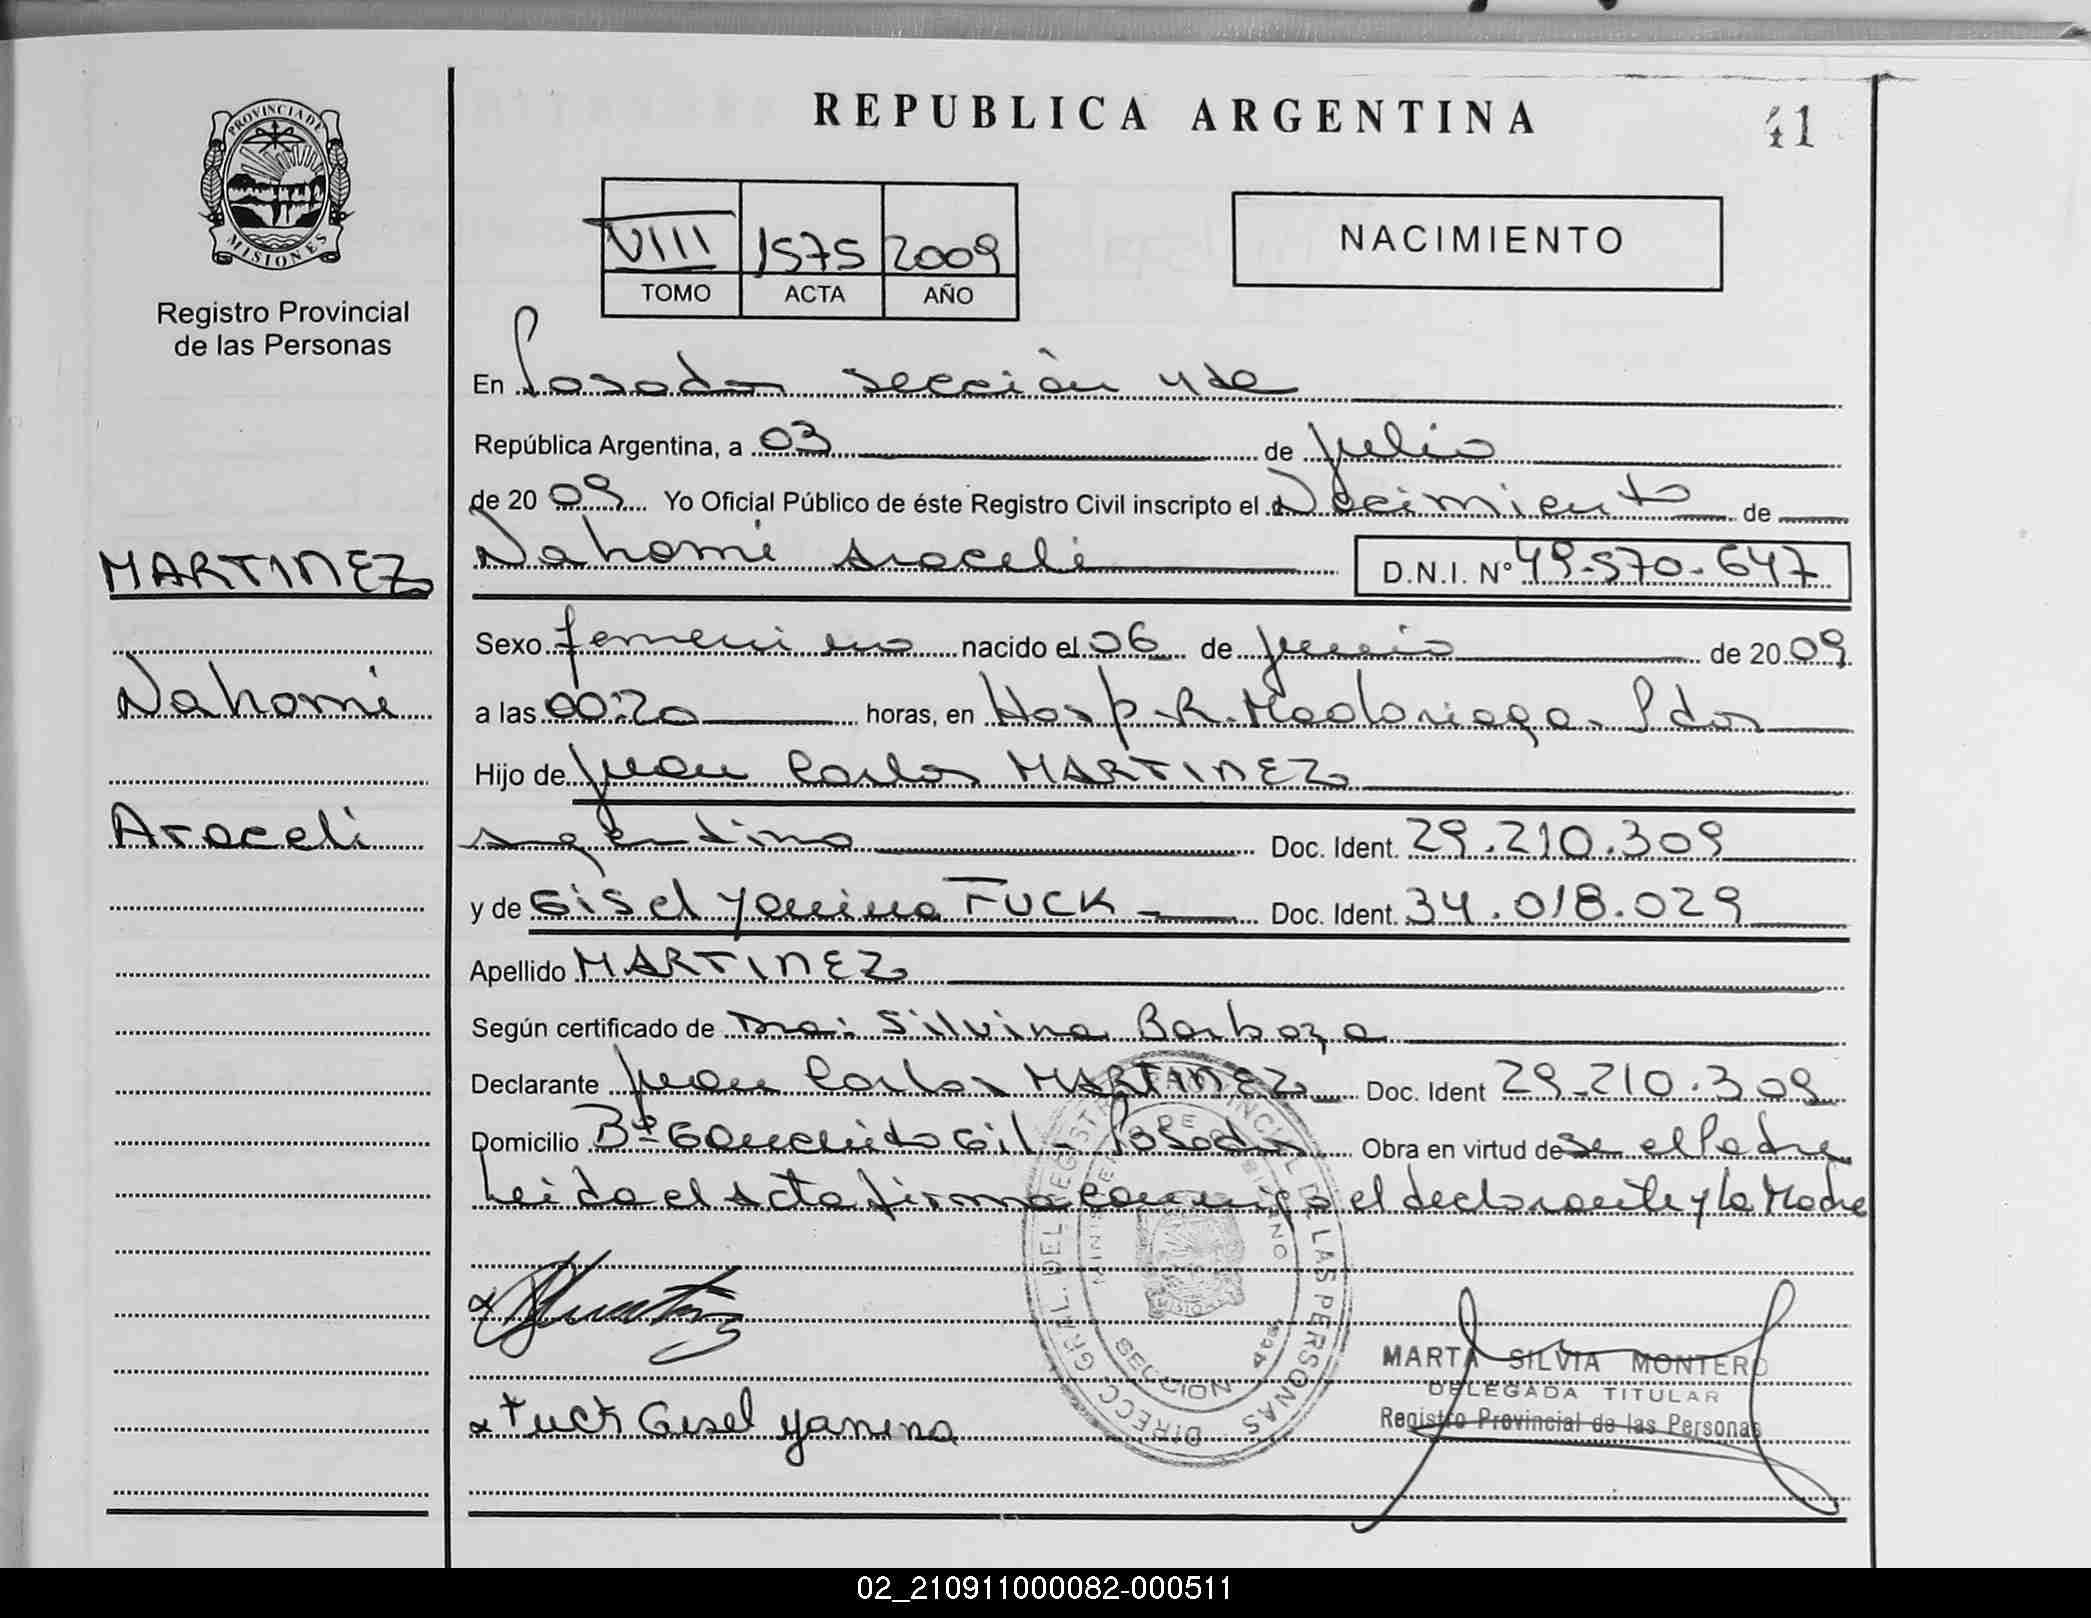 REPUBLICA ARGENTINA
41
PROVINCIA DE
MISIONES
Registro Provincial
de las Personas
VIII 1575 2009
TOMO ACTA AÑO
NACIMIENTO
En Posadas sección 4ta
República Argentina, a 03 de Julio
de 20 09 Yo Oficial Público de éste Registro Civil inscripto el Nacimiento de
Nahomi Araceli D.N.I. Nº 49.570.647
MARTINEZ
Nahomi
Araceli
Sexo femenino nacido el 06 de junio de 20 09
a las 00:20 horas, en Hosp. R. Madariaga. Pdas
Hijo de Juan Carlos MARTINEZ
argentino Doc. Ident. 29.210.309
y de Gisel Yanina FUCK Doc. Ident. 34.018.029
Apellido MARTINEZ
Según certificado de Dra: Silvina Barboza
Declarante Juan Carlos MARTINEZ Doc. Ident 29.210.309
Domicilio Bº Gauchito Gil - Posadas Obra en virtud de se el Padre
Leida el Acta firma conmigo el declarante y la Madre
DIRECC. GRAL. DEL REGISTRO PROVINCIAL DE LAS PERSONAS
MISIONES
SECCION 4ta
MARTA SILVIA MONTERO
DELEGADA TITULAR
Registro Provincial de las Personas
Fuck Gisel Yanina
02_210911000082-000511